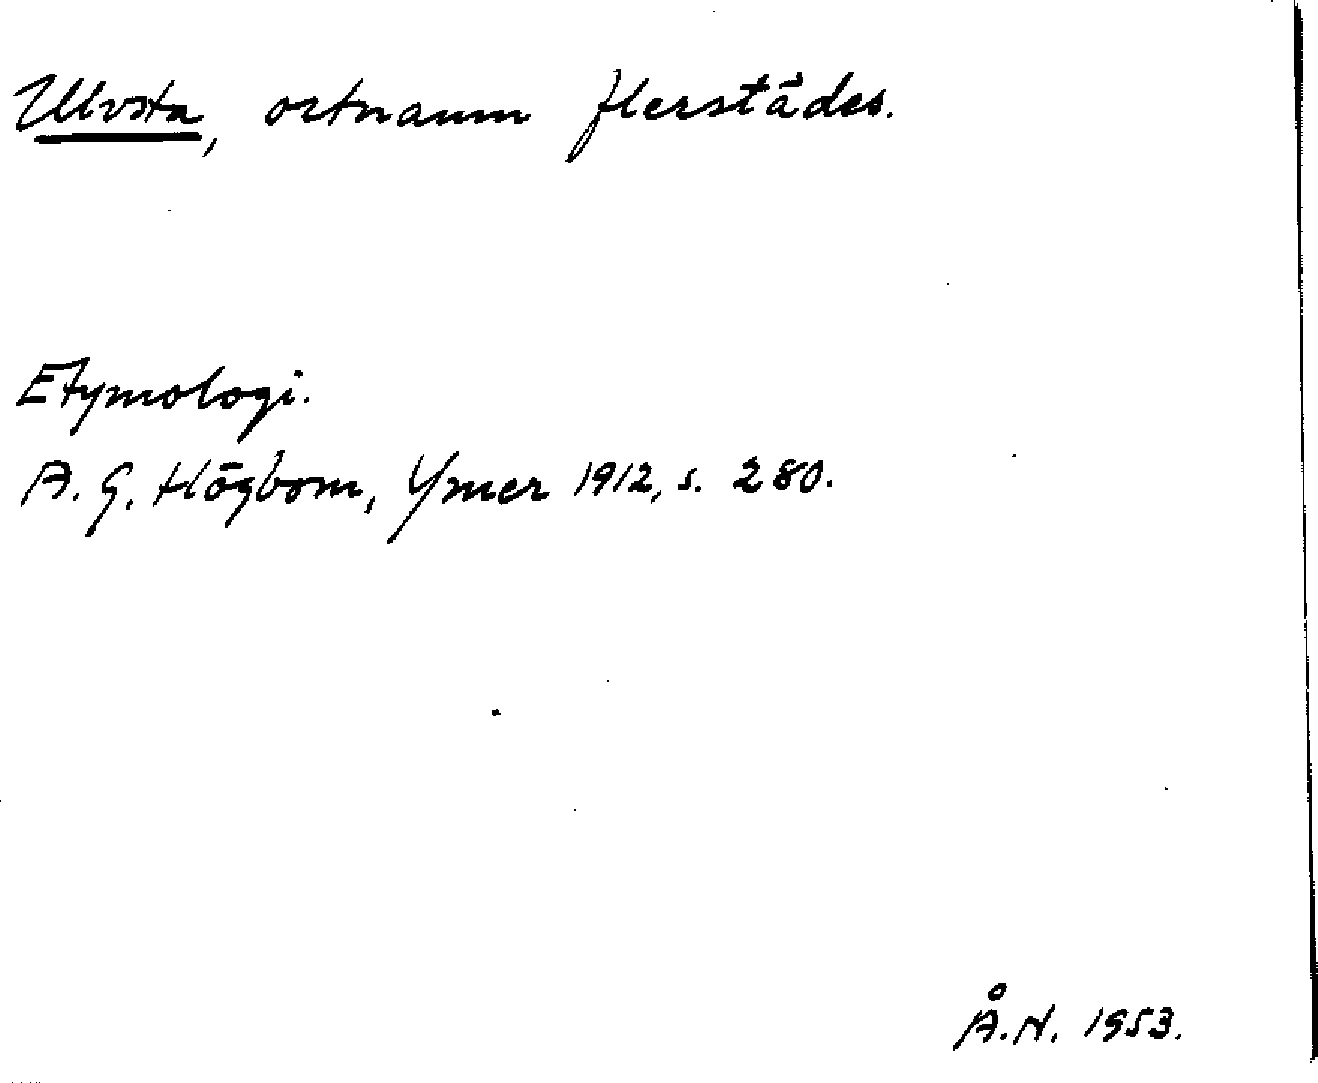 Ulvsta, ortnamn flerstädes.
Etymologi.
A. G. Högbom, Ymer 1912, s. 280.
Å.N. 1953.